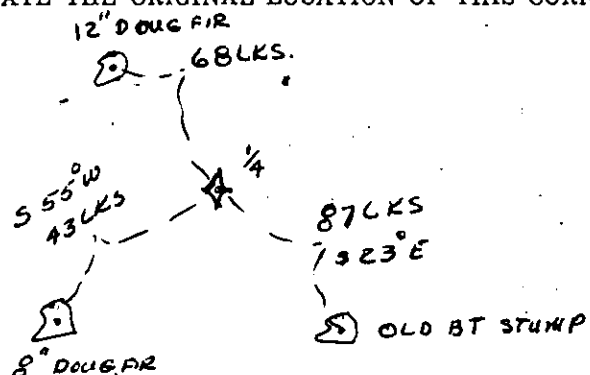 ATE THE ORIGINAL LOCATION OF THIS COR
12" DOUG FIR
68 LKS.
1/4
S 55° W
43 LKS
87 LKS
S 23° E
OLD BT STUMP
8" DOUG FIR